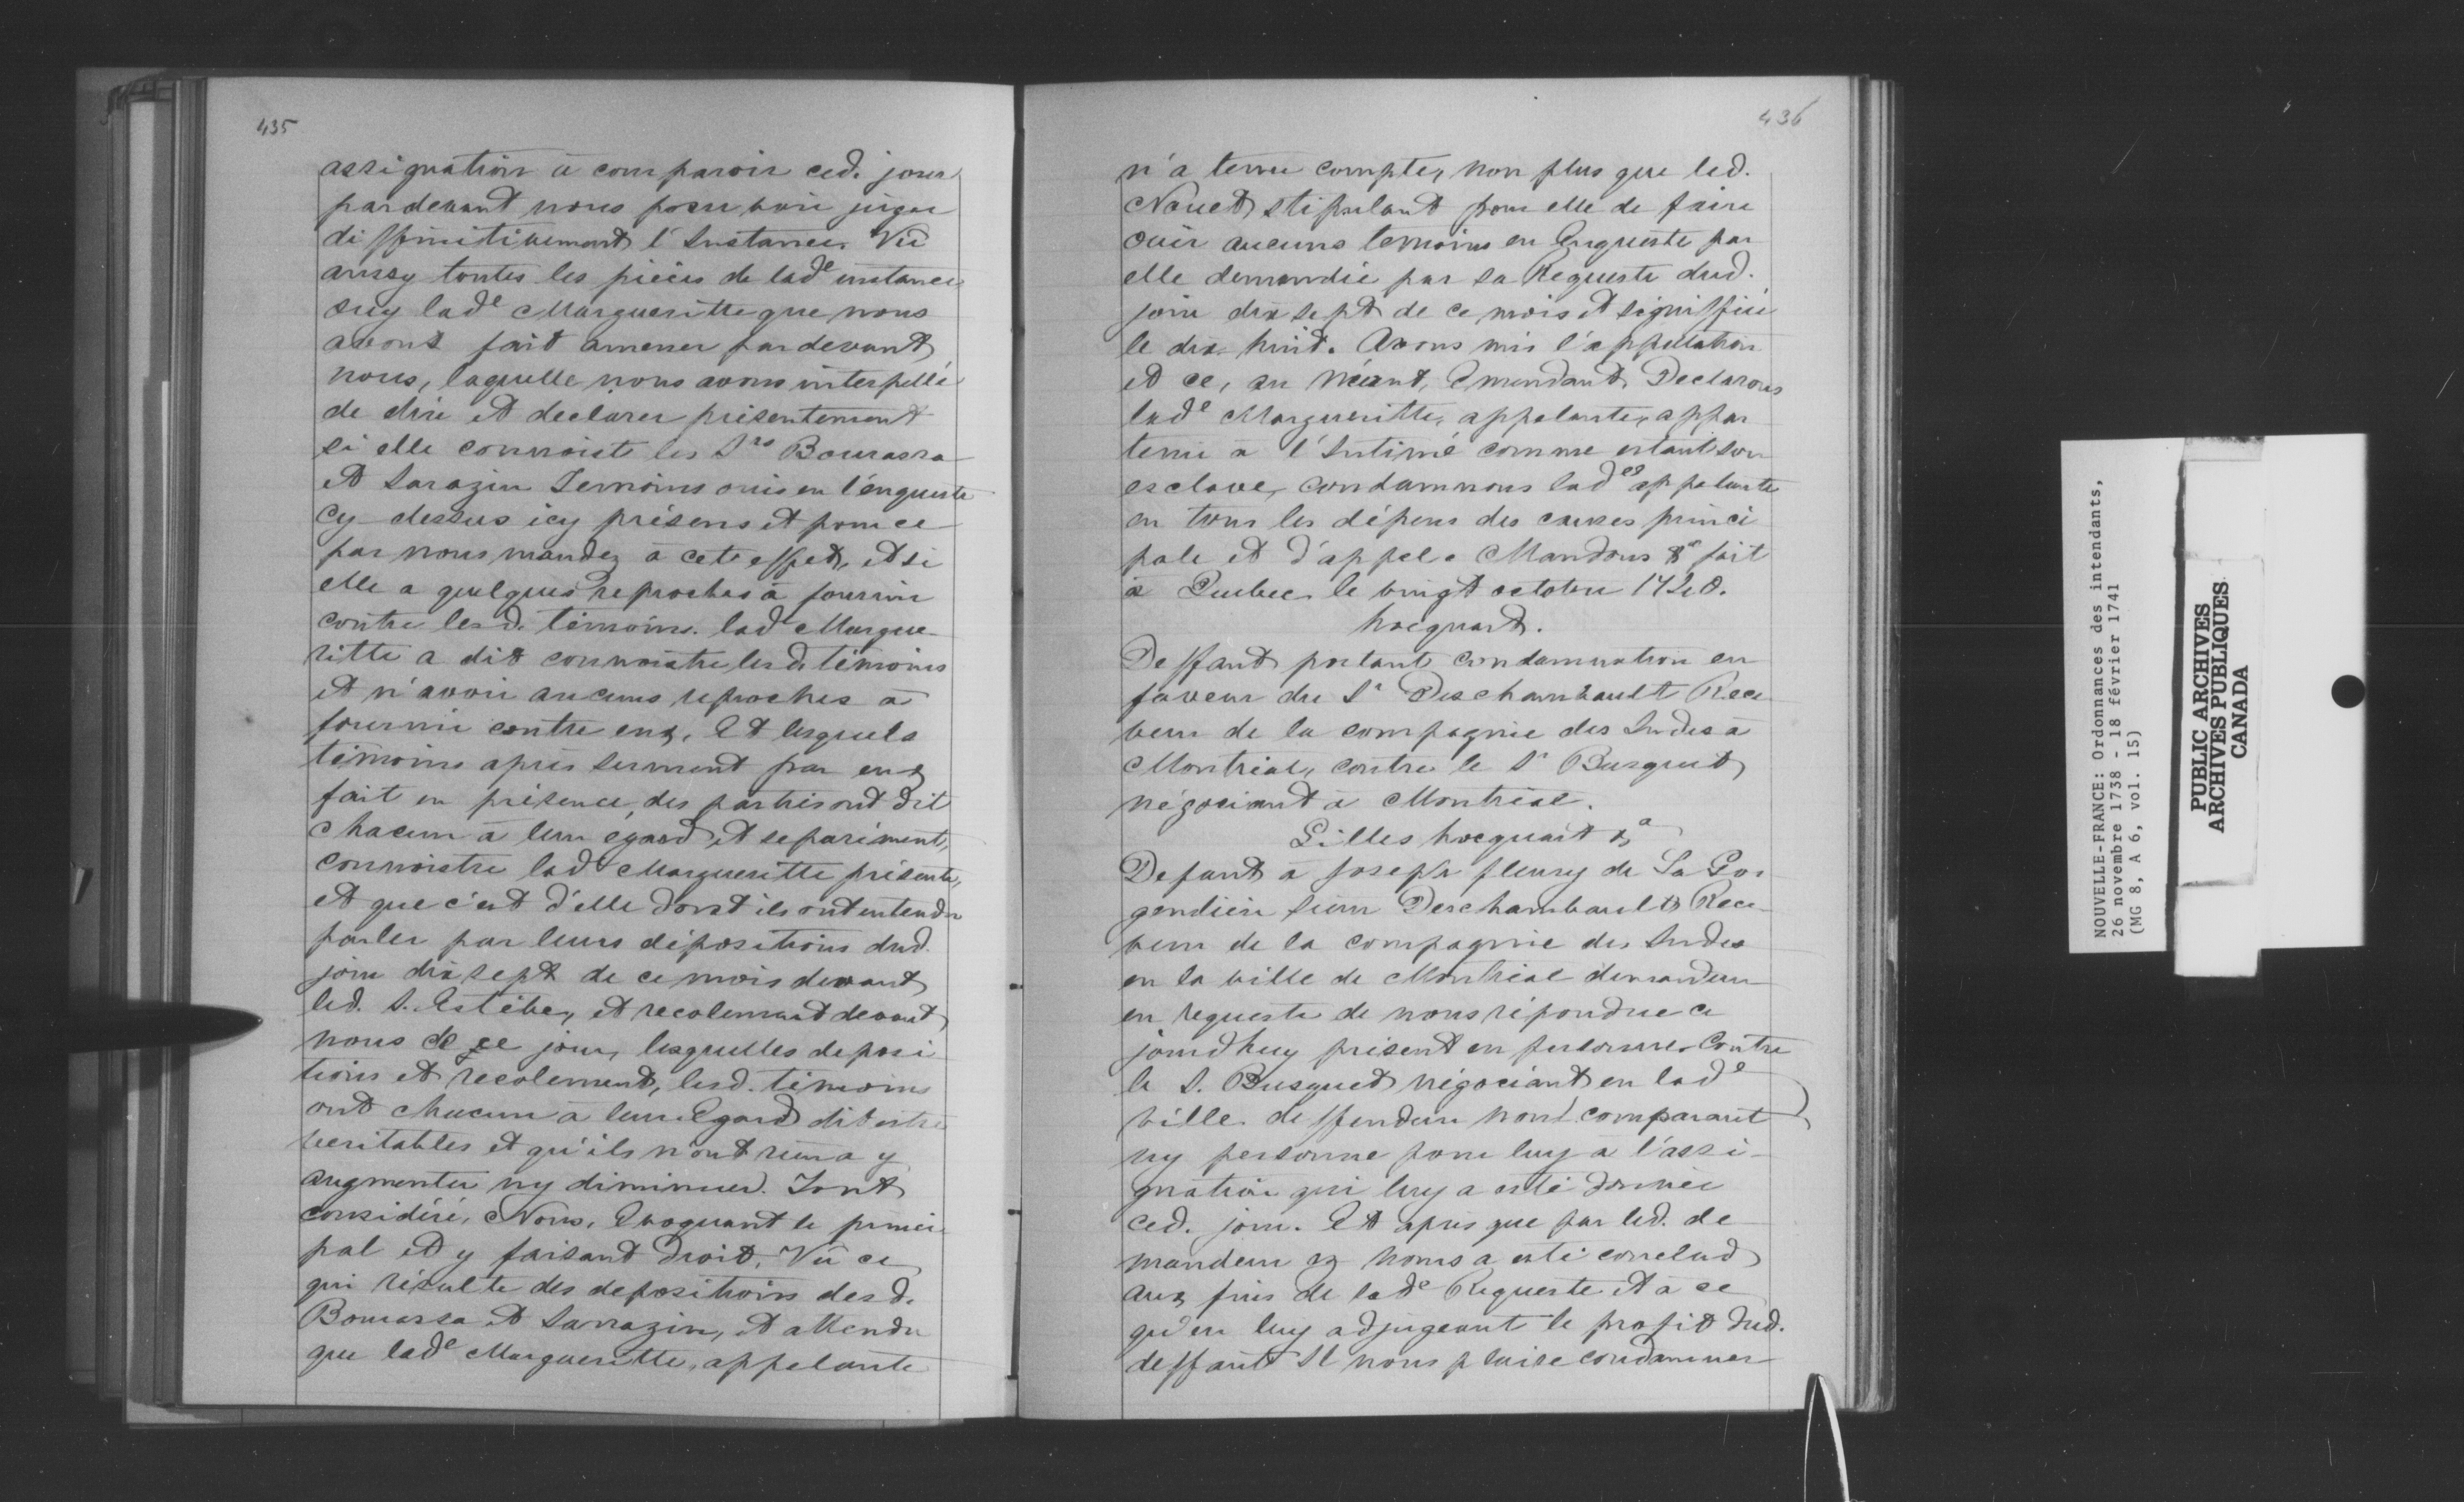 435
assignation à comparoir ced. jour
pardevant nous pour voir juger
diffinitivement l'Instance. Vû
aussy toutes les pièces de lad.e instance
ouy lad.e Margueritte que nous
avons fait amener pardevant
nous, laquelle nous avons interpellé
de dire et declarer présentement
si elle connoist les Srs Bourassa
et Sarazin Temoins ouis en l'enqueste
cy dessus icy présens et pour ce
par nous mandez à cete effet, et si
elle a quelques reproches à fournir
contre lesd. témoins. lad. Margue-
ritte a dit connoistre lesd. témoins
et n'avoir aucuns reproches à
fournir contre eux, Et lesquels
témoins après serment par eux
fait en présence des parties ont dit
chacun à leur égard et separément,
connoistre lad.e Margueritte présente,
et que c'est d'elle dont ils ont entendu
parler par leurs dépositions dud.
jour dix sept de ce mois devant
led. S. Estèbe, et recolement devant
nous de ce jour, lesquelles déposi
tions et recolement, lesd. témoins
ont chacun à leur Egard dit estre
veritables et qu'ils n'ont rien a y
augmenter ny diminuer. Tout
considéré, Nous, Evoquant le princi
pal et y faisant droit, Vû ce
qui résulte des depositions desd.
Bourassa et Sarrazin, et attendu
que lad.e Margueritte, appelante
436
n'a tenu compte, non plus que led.
Nouet stipulant pour elle de faire
ouir aucuns temoins en Enqueste par
elle demandée par sa Requeste dud.
jour dix sept de ce mois et signiffiée
le dix huit. Avons mis l'appellation
et ce, au néant, Emendant, Declarons
lad.e Margueritte, appelante, appar
tenir à l'Intimé comme estant son
esclave, condamnons lad.e appelante
en tous les dépens des causes princi
pale et d'appel. Mandons &a fait
à Quebec le vingt octobre 1740.
hocquart.
Deffaut portant condamnation en
faveur du Sr Deschambault Rece
veur de la compagnie des Indes à
Montréal, contre le Sr Busquet
négociant à Montréal.
Gilles hocquart &a
Defaut à Joseph fleury de La Gor
gendiere sieur Deschambault Rece-
veur de la compagnie des Indes
en la ville de Montréal demandeur
en requeste de nous répondue ce
jourdhuy présent en personne. Contre
le S. Busquet négociant en lad.e
ville deffendeur non comparant
ny personne pour luy à l'assi-
gnation qui luy a esté donnée
ced. jour. Et après que par led. de
mandeur nous a esté conclud
aux fins de lad.e Requeste et à ce
qu'en luy adjugeant le profit dud.
deffaut Il nous plaise condamner
NOUVELLE-FRANCE: Ordonnances des intendants,
26 novembre 1738 - 18 février 1741
(MG 8, A 6, vol. 15)
PUBLIC ARCHIVES
ARCHIVES PUBLIQUES
CANADA